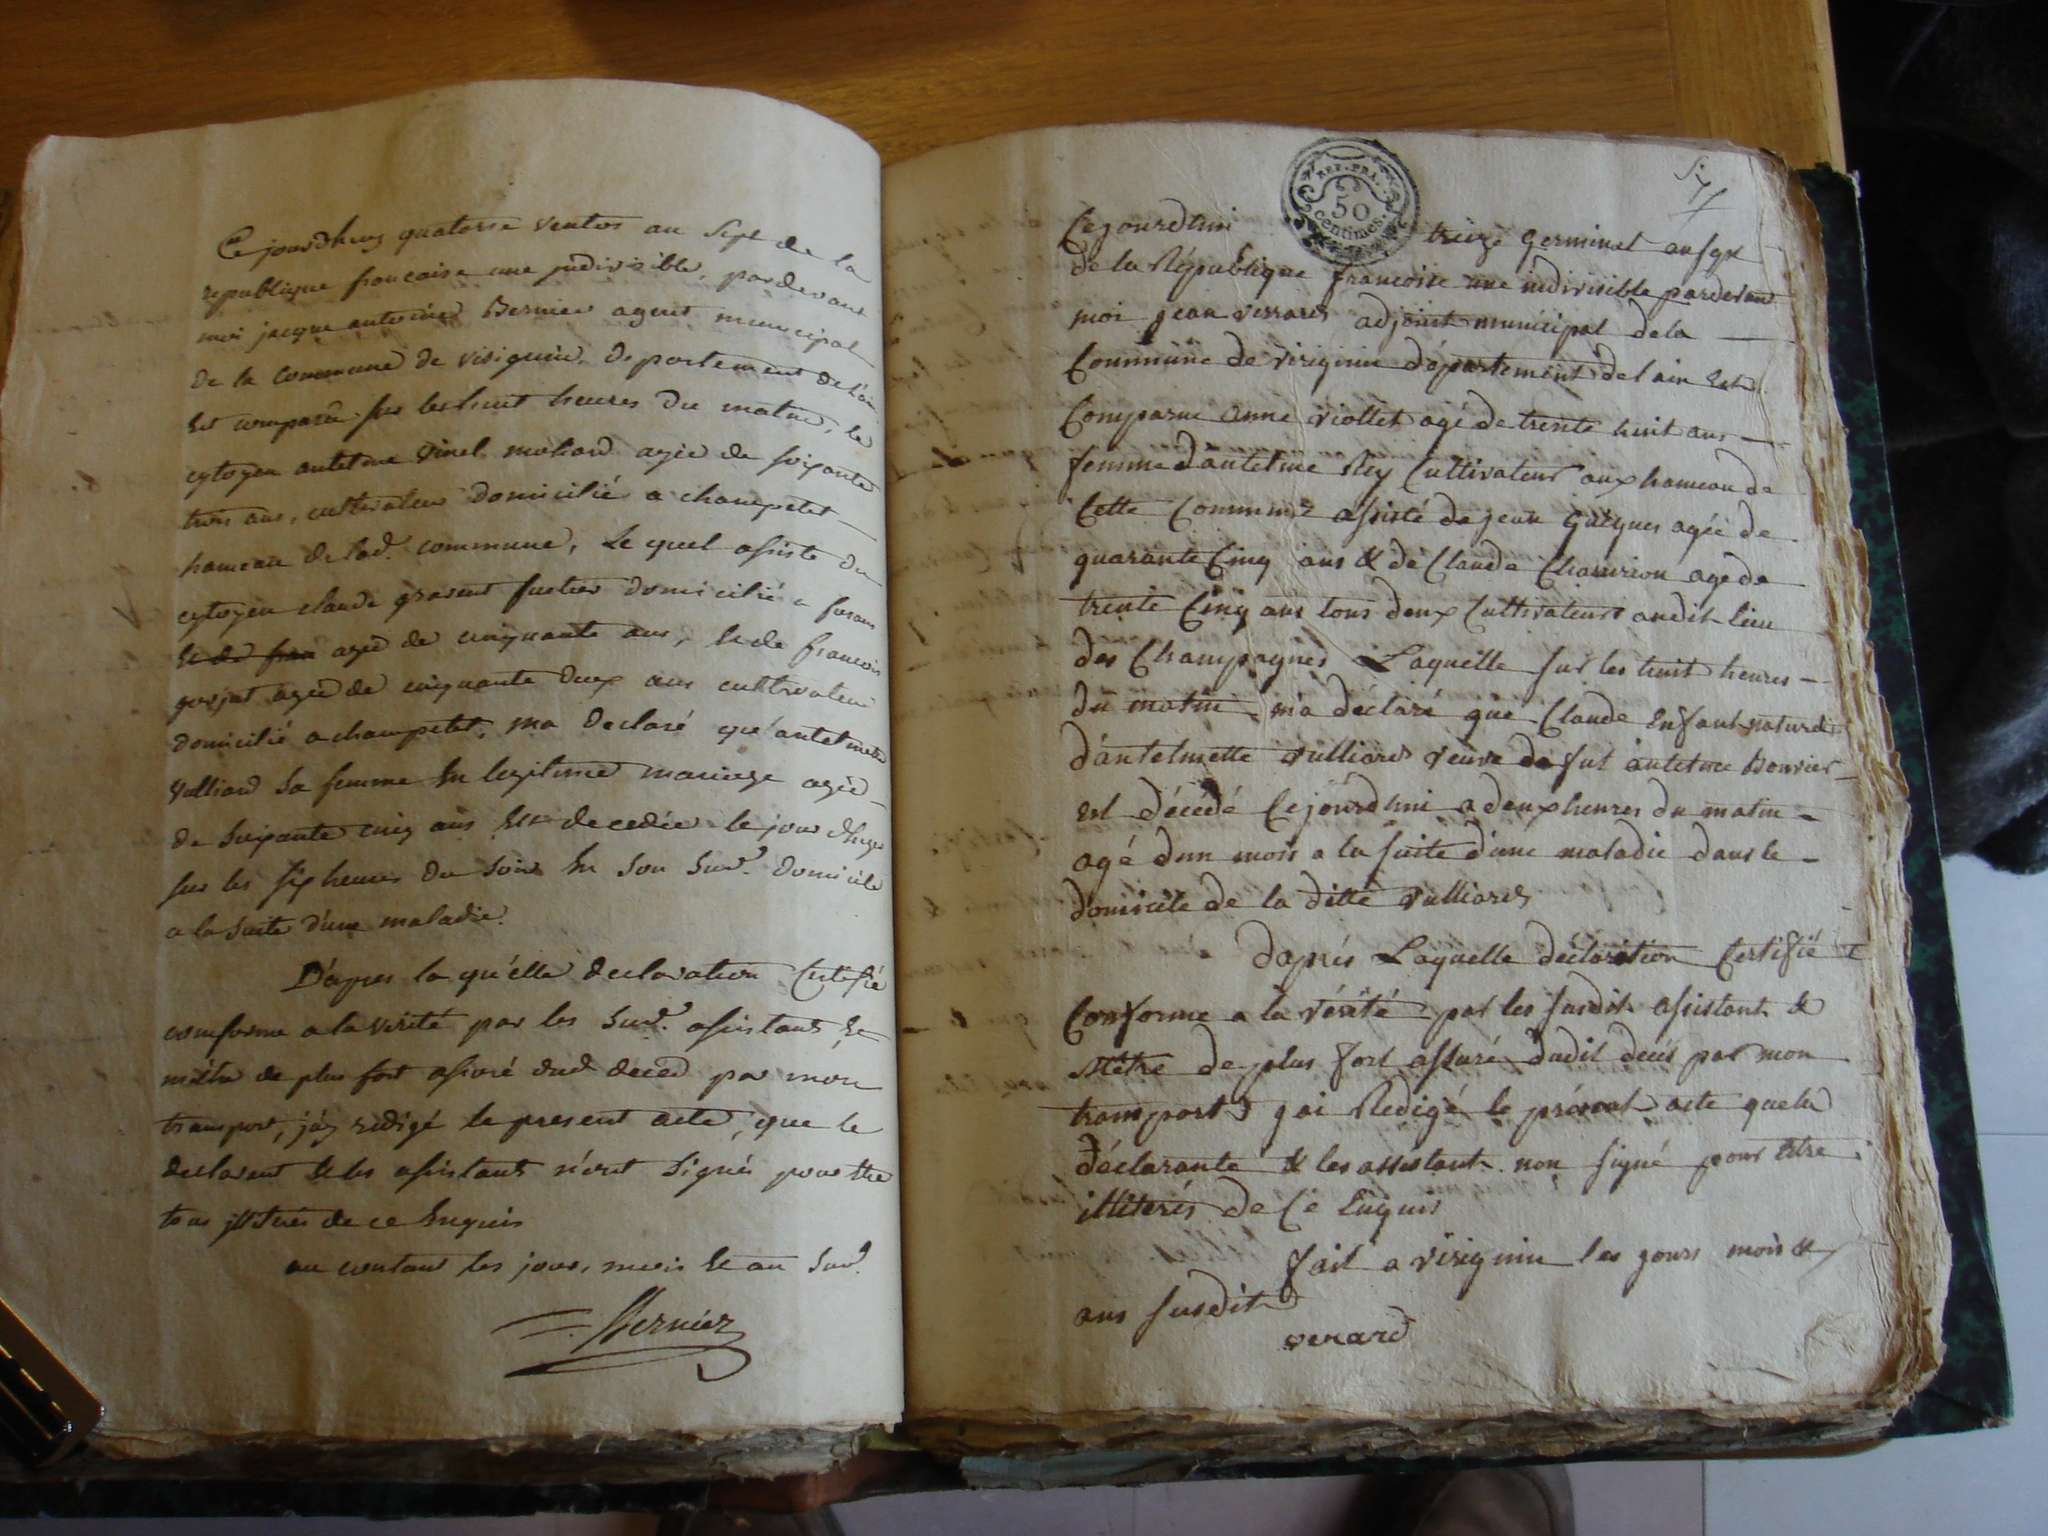 Ce jourdhuy quatorse ventos an sept de la
republique francaise une jndivisible, pardevant
moi jacque antoine Bernier agent municipal
de la commune de virignin departement de l'ain
Est comparu sur les huit heures du matin, le
cytoyen antelme vinel moliard agée de soixante
trois ans, cultivateur domicilié a champetel
hameau de lad. commune, Le quel assiste du
cytoyen claude fustier domicilié a
et de fran agée de cinquante ans, et de francois
goujat agée de cinquante deux ans cultivateur
domicilié a champetel, ma declaré que antelmette
vulliard sa femme En legitime mariage agée
de soixante cinq ans Est decedée le jour dhuy
sur les six heures du soir En son susd. domicile
a la suite d'une maladie.
D'apres la qu'elle declaration Certifié
comforme a la verité par les susd. assistants Et
m'être de plus fort assuré dud deced par mon
transport, j'ay redigé le present acte, que le
declarant Et les assistants n'ont signés pour Etre
tous jlitérés de ce Enquis
au contant les jour, mois Et an susd.
Bernier
REP. FRA.
50
centimes.
Cejourdhui treize germinal an sept
de la République francoise une indivisible pardevant
moi jean verrard adjoint municipal dela
Commune de virignin département del ain Est
Comparue anne viollet agé de trente huit ans
femme d'antelme Rey Cultivateur aux hameau de
Cette Commune assisté de jean agée de
quarante Cinq ans & de Claude agé de
trente Cinq ans tous deux Cultivateurs audit lieu
des Champagnes Laquelle sur les huit heures
du matin m'a déclaré que Claude Enfant naturel
d'antelmette vulliard veuve de fut antelme Bouvier
est décédé Cejourdhui a deux heures du matin
agé d'un mois a la suite d'une maladie dans le
domicile de la ditte vulliard
dapres Laquelle déclaration Certifié
Conforme a la vérité par les susdit assistant &
Mêtre de plus fort assuré dudit deces par mon
transport j'ai Redigé le présent acte que la
déclarante & les assistant non signé pour Etre
illiterés de Ce Enquis
fait a virignin les jours mois &
ans susdit
verard